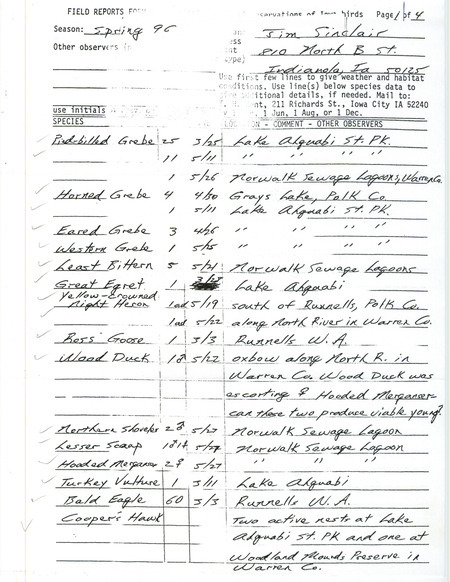 FIELD REPORTS FOR observations of Iowa birds Page 1 of 4
Season: Spring 96 Jim Sinclair
Other observers 810 North B St.
Indianola, Ia 50125
Use first few lines to give weather and habitat
conditions. Use line(s) below species data to
additional details, if needed. Mail to:
211 Richards St., Iowa City IA 52240
use initials 1 Jun, 1 Aug, or 1 Dec.
SPECIES - COMMENT - OTHER OBSERVERS
Pied-billed Grebe 25 3/25 Lake Ahquabi St. Pk.
11 5/11 " " " "
1 5/26 Norwalk Sewage Lagoons, Warren Co.
Horned Grebe 4 4/30 Grays Lake, Polk Co.
1 5/11 Lake Ahquabi St. Pk.
Eared Grebe 3 4/26 " " " "
Western Grebe 1 5/15 " " " "
Least Bittern 5 5/21 Norwalk Sewage Lagoons
Great Egret 1 Lake Ahquabi
Yellow-crowned
Night Heron 1ad 5/19 south of Runnells, Polk Co.
1ad 5/22 along North River in Warren Co.
Ross' Goose 1 3/3 Runnells W.A.
Wood Duck 1♂ 5/22 oxbow along North R. in
Warren Co. Wood Duck was
escorting ♀ Hooded Merganser
can these two produce viable young
Northern Shoveler 2♂ 5/27 Norwalk Sewage Lagoon
Lesser Scaup 1♂1♀ 5/27 Norwalk Sewage Lagoon
Hooded Merganser 2♀ 5/27 " " "
Turkey Vulture 1 3/11 Lake Ahquabi
Bald Eagle 60 3/3 Runnells W.A.
Cooper's Hawk Two active nests at Lake
Ahquabi St. Pk and one at
Woodland Mounds Preserve in
Warren Co.